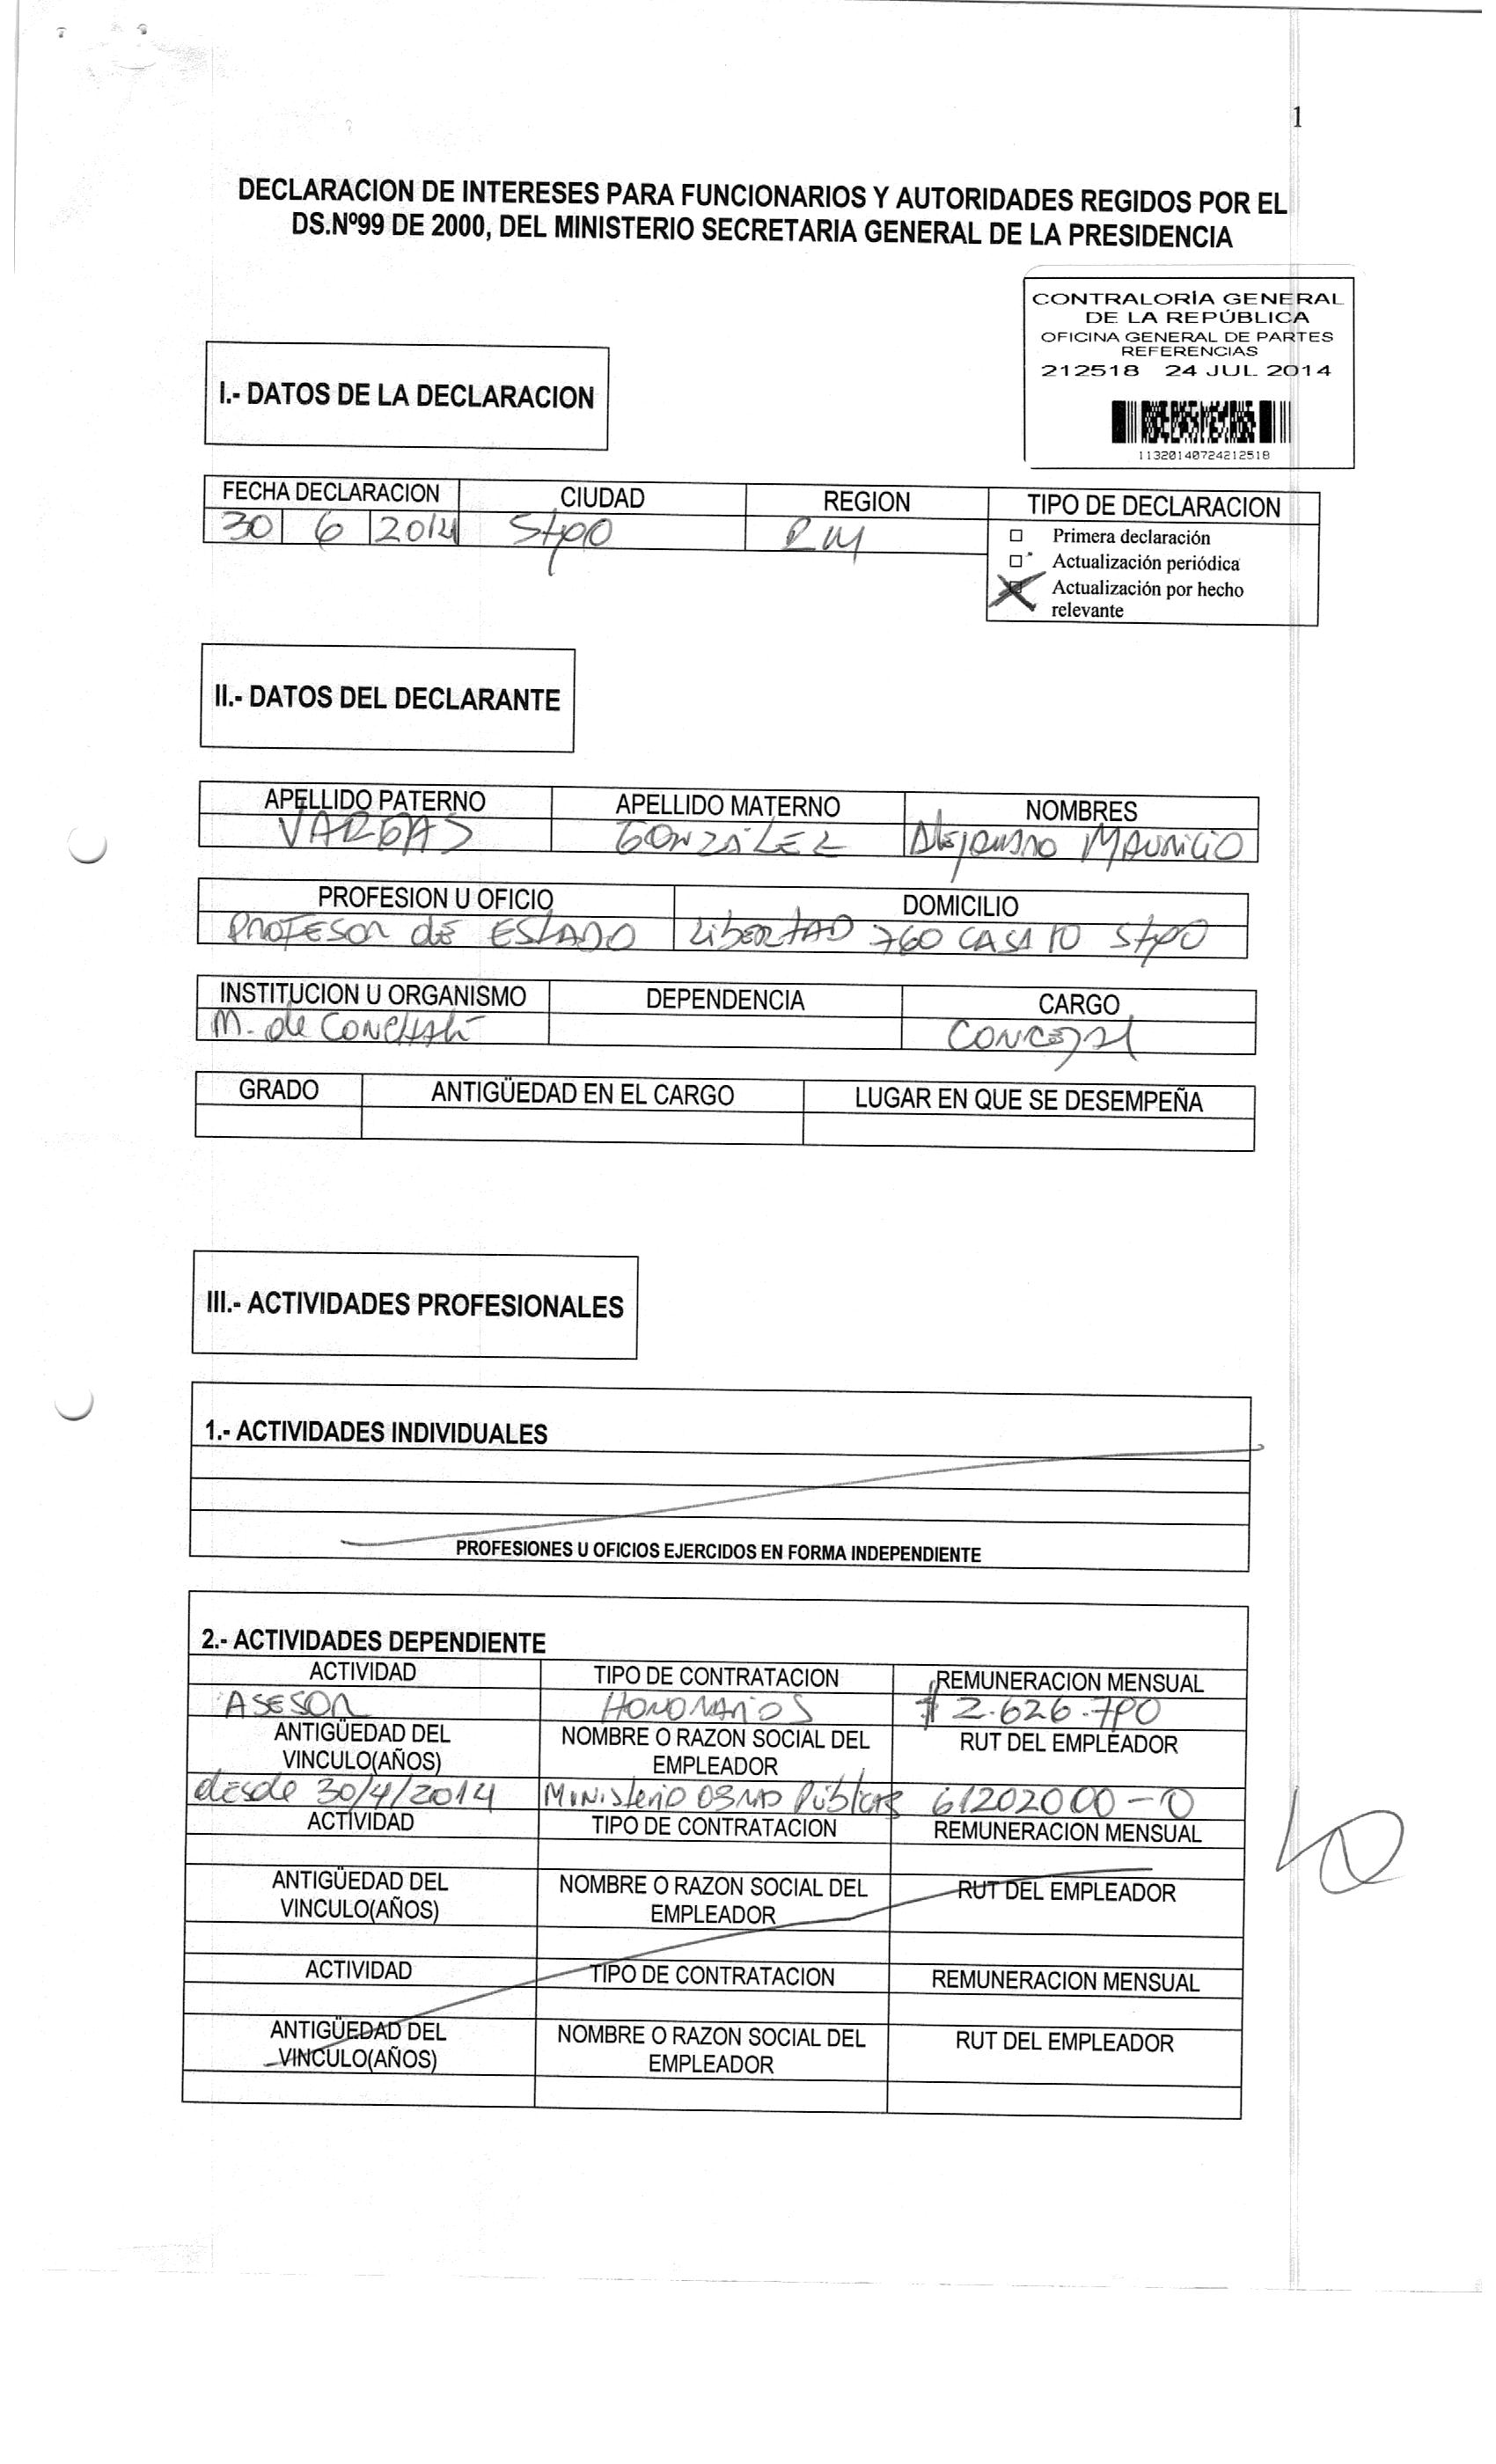 1
DECLARACION DE INTERESES PARA FUNCIONARIOS Y AUTORIDADES REGIDOS POR EL
DS.Nº99 DE 2000, DEL MINISTERIO SECRETARIA GENERAL DE LA PRESIDENCIA
CONTRALORÍA GENERAL
DE LA REPÚBLICA
OFICINA GENERAL DE PARTES
REFERENCIAS
212518 24 JUL 2014
11320140724212518
I.- DATOS DE LA DECLARACION
FECHA DECLARACION CIUDAD REGION TIPO DE DECLARACION
30 6 2014 Stgo RM
Primera declaración
Actualización periódica
Actualización por hecho
relevante
II.- DATOS DEL DECLARANTE
APELLIDO PATERNO APELLIDO MATERNO NOMBRES
VARGAS GONZÁLEZ Alejandro Mauricio
PROFESION U OFICIO DOMICILIO
PROFESOR de ESTADO LIBERTAD 760 CASA 10 Stgo
INSTITUCION U ORGANISMO DEPENDENCIA CARGO
M. de CONCHALÍ CONCEJAL
GRADO ANTIGÜEDAD EN EL CARGO LUGAR EN QUE SE DESEMPEÑA
III.- ACTIVIDADES PROFESIONALES
1.- ACTIVIDADES INDIVIDUALES
PROFESIONES U OFICIOS EJERCIDOS EN FORMA INDEPENDIENTE
2.- ACTIVIDADES DEPENDIENTE
ACTIVIDAD TIPO DE CONTRATACION REMUNERACION MENSUAL
ASESOR HONORARIOS $ 2.626.790
ANTIGÜEDAD DEL NOMBRE O RAZON SOCIAL DEL RUT DEL EMPLEADOR
VINCULO(AÑOS) EMPLEADOR
desde 30/4/2014 Ministerio OBRAS Públicas 61202000-0
ACTIVIDAD TIPO DE CONTRATACION REMUNERACION MENSUAL
ANTIGÜEDAD DEL NOMBRE O RAZON SOCIAL DEL RUT DEL EMPLEADOR
VINCULO(AÑOS) EMPLEADOR
ACTIVIDAD TIPO DE CONTRATACION REMUNERACION MENSUAL
ANTIGÜEDAD DEL NOMBRE O RAZON SOCIAL DEL RUT DEL EMPLEADOR
VINCULO(AÑOS) EMPLEADOR